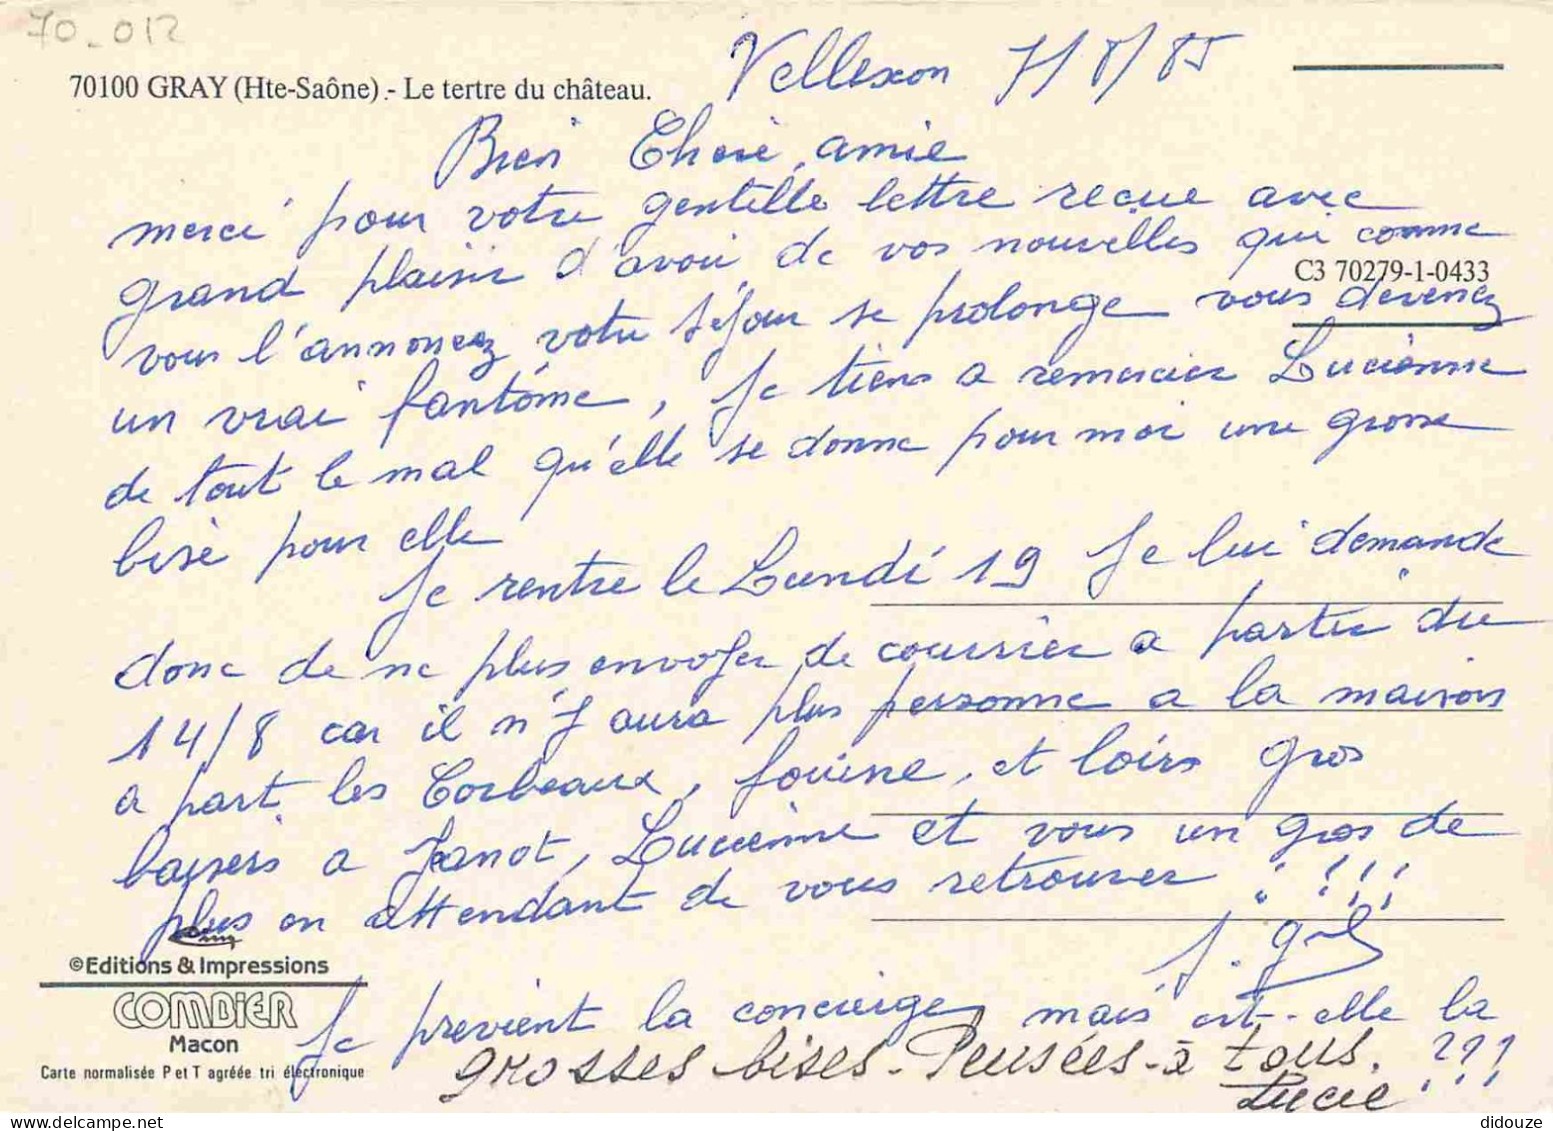 70-012
70100 GRAY (Hte-Saône) - Le tertre du château.
Vellexon 7/8/85
Bien Chère amie
merci pour votre gentille lettre reçue avec
grand plaisir d'avoir de vos nouvelles qui comme
C3 70279-1-0433
vous l'annoncez votre séjour se prolonge vous devenez
un vrai fantôme, Je tiens a remercier Lucienne
de tout le mal qu'elle se donne pour moi une grosse
bise pour elle
Je rentre le Lundi 19 Je lui demande
donc de ne plus envoyer de courrier a partir du
14/8 car il n'y aura plus personne a la maison
a part les Corbeaux, fouine, et loirs gros
baisers a Janot, Lucienne et vous un gros de
plus en attendant de vous retrouver !!!!
© Editions & Impressions
COMBIER
Macon
Carte normalisée P et T agréée tri électronique
Je previent la concierge mais est-elle la
???
grosses bises - Pensées - à tous.
Lucie
didouze